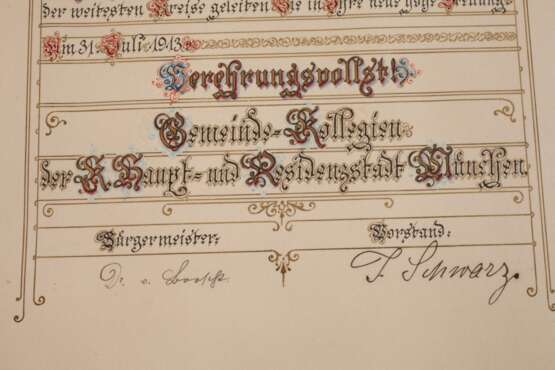 der weitesten Kreise geleiten Sie in Ihre neue hohe Stellung
Am 31. Juli 1913.
Verehrungsvollst!
Gemeinde-Kollegien
der K. Haupt- und Residenzstadt München.
Bürgermeister: Vorstand:
Dr. v. Borscht. F. Schwarz.